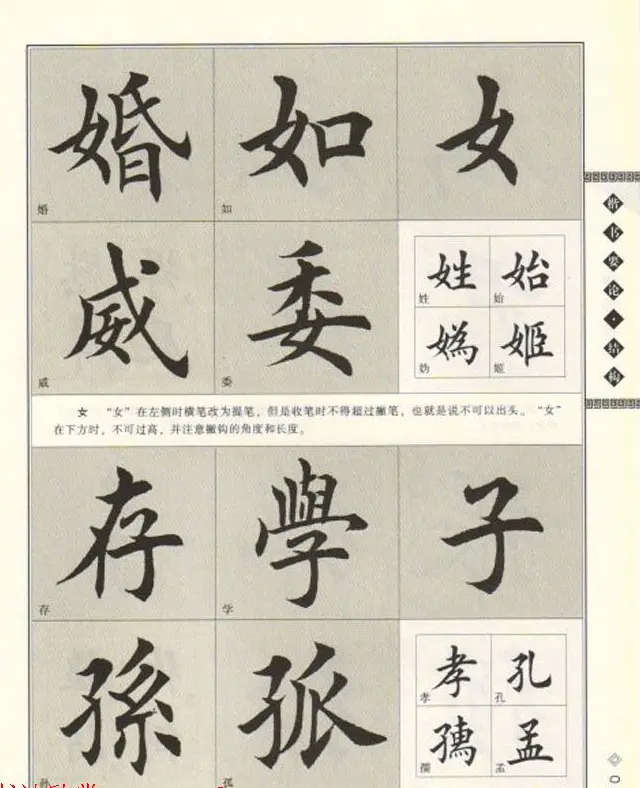 婚 如 女
婚 如
威 委
威 委
姓 始
姓 始
媯 姬
妫 姬
女 “女”在左侧时横笔改为提笔，但是收笔时不得超过撇笔，也就是说不可以出头。“女”
在下方时，不可过高，并注意撇钩的角度和长度。
存 學 子
存 学
孫 孤
孙 孤
孝 孔
孝 孔
孺 孟
孺 孟
楷书要论·结构